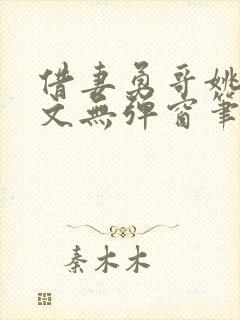 借妻勇哥姚
文无弹窗笔
秦木木